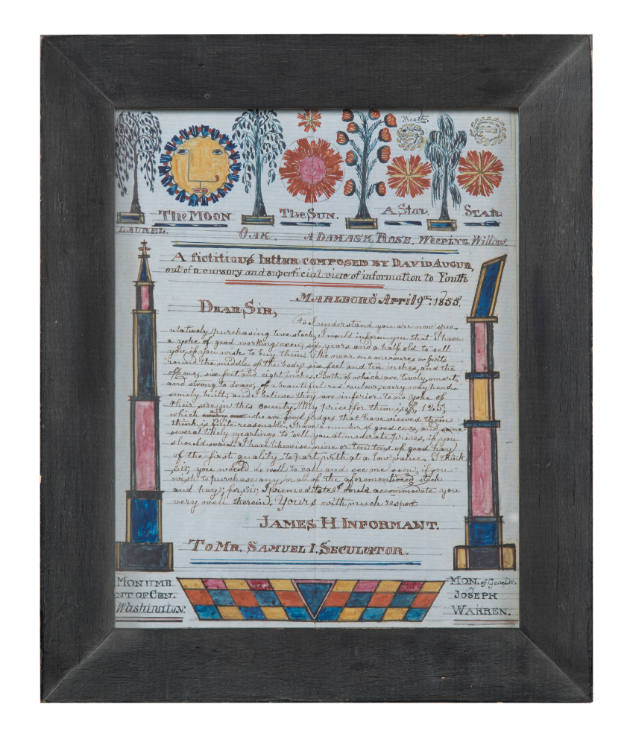 Heath
The Moon The Sun. A Star. Star.
Laurel. Oak. A Damask Rose. Weeping Willow.
A fictitious letter composed by David Augur,
out of a cursory and superficial view of information to Youth
Marlboro' April 9th. 1855.
Dear Sir,
I understand you are now spec-
ulatively purchasing live stock, I would inform you that I have
a yoke of good working oxen, six years and a half old to sell
you, if you wish to buy them: the near one measures in girth
round the middle of the body six feet and ten inches, and the
off one, six feet and eight inches. Both of which are lively, smart,
and strong to draw, of a beautiful red colour, carry very hand-
somely built, and I believe they are inferior to no yoke of
their size in this County. My price for them is
which are good judges that have viewed them
think is quite reasonable. I have a number of good cows, and some
several likely yearlings to sell you at moderate prices, if you
should want. I have likewise nine or ten tons of good hay
of the first quality, to part with at a low value. I think
Sir, you would do well to call and see me soon, if you
wish to purchase any or all of the aforementioned stock
and hay; for Sir, I accommodate you
very well therein. Yours with much respect
James H. Informant.
To Mr. Samuel I. Seculator.
Monume
nt of Gen.
Washington.
Mon. of Gen.
Joseph
Warren.